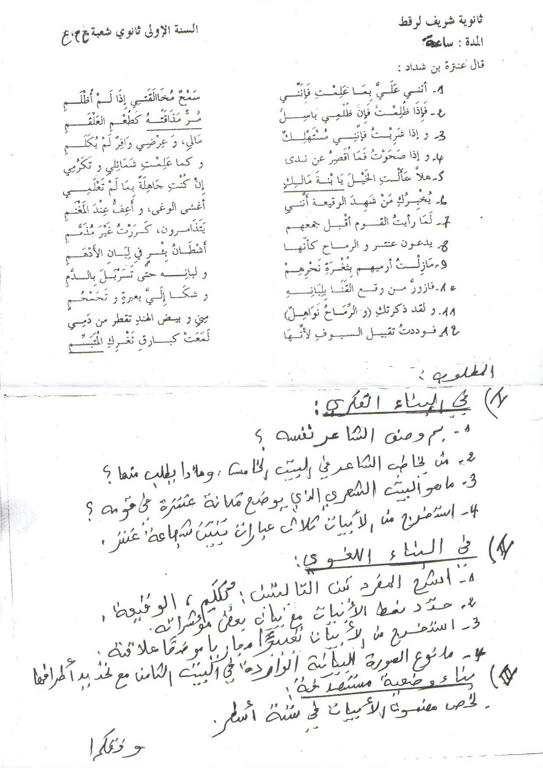 ثانوية شريف لرقط
السنة الاولى ثانوي شعبة ج م ع
المدة : ساعة
قال عنترة بن شداد :
1- أثني عَلَيَّ بِمَا عَلِمْتِ فَإِنَّنِي سَمْحٌ مُخَالَقَتِي إِذَا لَمْ أُظْلَمِ
2- فَإِذَا ظُلِمْتُ فَإِنَّ ظُلْمِي بَاسِلٌ مُرٌّ مَذَاقَتُهُ كَطَعْمِ العَلْقَمِ
3- و إِذَا شَرِبْتُ فَإِنَّنِي مُسْتَهْلِكٌ مَالِي، وَ عِرْضِي وَافِرٌ لَمْ يُكْلَمِ
4- و إِذَا صَحَوْتُ فَمَا أُقَصِّرُ عن ندى و كما عَلِمْتِ شَمَائِلِي و تَكَرُّمِي
5- هَلاَّ سَأَلْتِ الخَيْلَ يَا بْنَةَ مَالِكٍ إِنْ كُنْتِ جَاهِلَةً بِمَا لَمْ تَعْلَمِي
6- يُخْبِرْكِ مَنْ شَهِدَ الوقيعة أَنَّنِي أَغْشى الوغى، و أَعِفُّ عِنْدَ المَغْنَمِ
7- لَمَّا رأيتُ القوم أقْبل جمعهم يَتَذَامرون، كَرَرْتُ غَيْرَ مُذَمَّمِ
8- يدعون عنتر و الرماح كأنّها أَشْطَانُ بِئْرٍ فِي لَبَانِ الأَدْهَمِ
9- مَازِلْتُ أرميهم بِثُغْرَةِ نَحْرِهِمْ و لبانِه حتَّى تَسَرْبَلَ بِالدَّمِ
10- فازورَّ من وقع القَنَا بِلَبَانِهِ و شكَا إِلَيَّ بعبرةٍ و تَحَمْحُمِ
11- و لقد ذكرتكِ (و الرِّمَاحُ نَوَاهِلٌ) مِنِّي و بيض الهندِ تقطر من دَمِي
12- فوددتُ تقبيل السيوف لأنَّهَا لَمَعَتْ كبارقِ ثَغْرِكِ المُتَبَسِّمِ
المطلوب :
I) في البناء الفكري :
1- بم وصف الشاعر نفسه ؟
2- من يخاطب الشاعر في البيت الخامس، وماذا يطلب منها ؟
3- ما هو البيت الشعري الذي يوضح مكانة عنترة في قومه ؟
4- استخرج من الأبيات ثلاث عبارات تبين شجاعة عنتر.
II) في البناء اللغوي :
1- اشرح المفردتين التاليتين : يكلم ، الوقيعة.
2- حدّد نمط الأبيات مع بيان بعض مؤشراته.
3- استخرج من الأبيات تعبيرا مجازيا موضحا علاقته.
4- ما نوع الصورة البيانية الواردة في البيت الثامن مع تحديد أطرافها
III) بناء وضعية مستهدفة :
- لخص مضمون الأبيات في ستة أسطر.
وفقكم ا